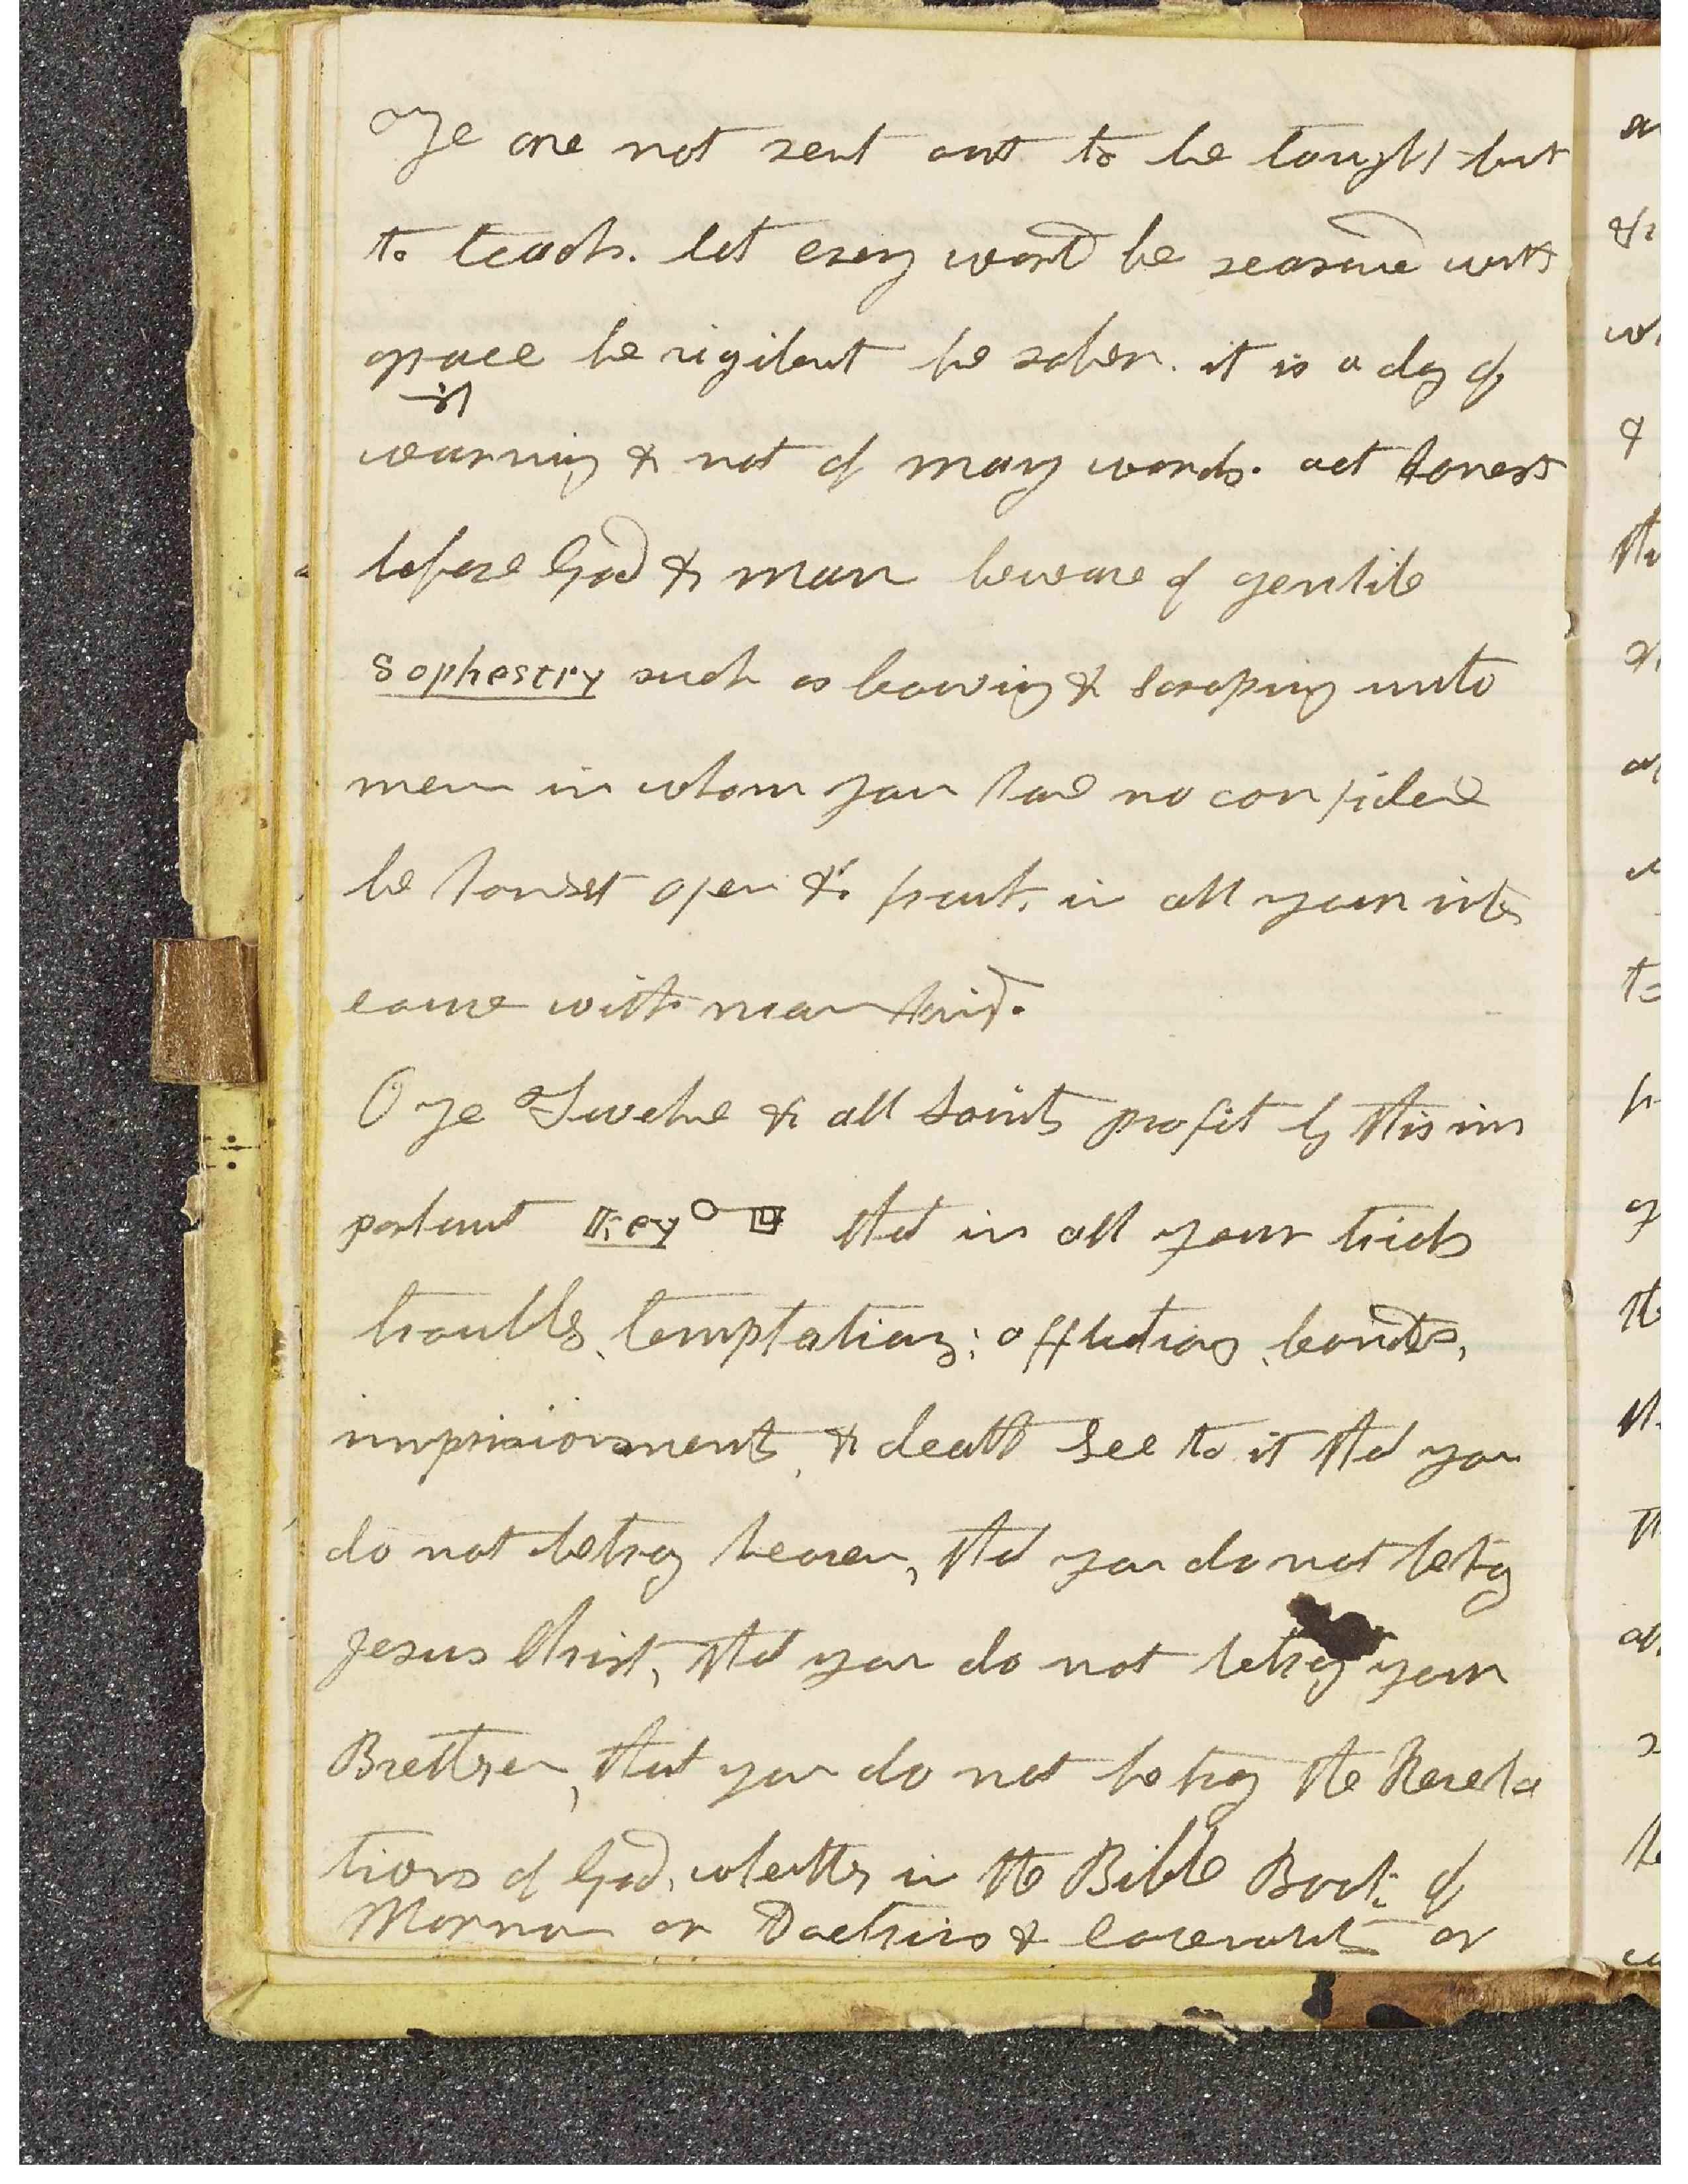 Ye are not sent out to be taught but
to teach. let every word be seasoned with
grace be vigilent be sober. it is a day of
warning & not of many words. act honest
before God & man beware of gentile
Sophestry such as bowing & scraping unto
men in whom you have no confidence
be honest open & frank in all your inter
course with mankind.
O ye Twelve & all Saints profit by this im
portant Key that in all your trials
troubles, temptations, afflictions, bonds,
imprisionments & death see to it that you
do not betray heaven, that you do not betray
Jesus Christ, that you do not betray your
Brethren, that you do not betray the Revela
tions of God, whether in the Bible Book of
Mormon or Doctrine & Covenants or